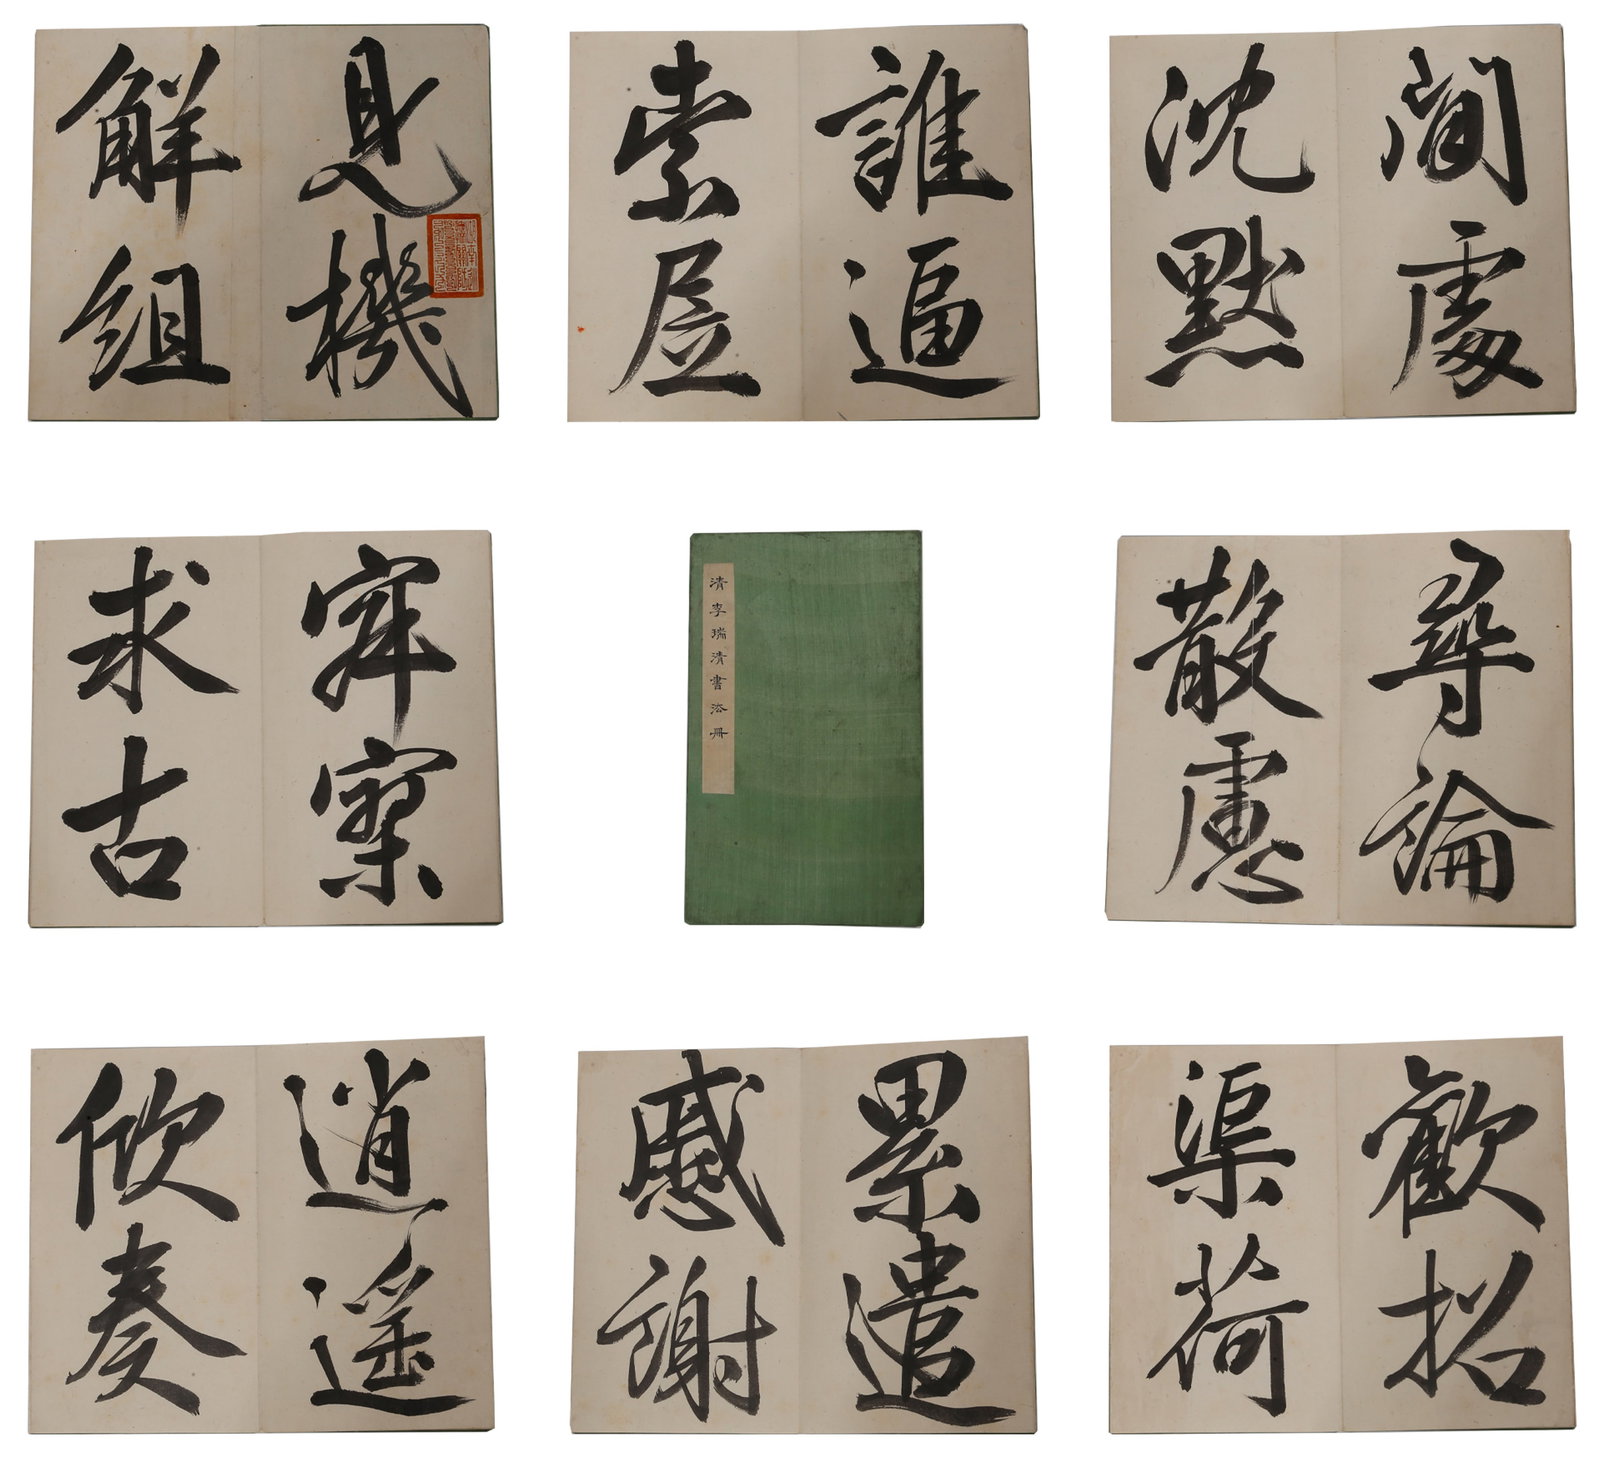 見機
解組
誰逼
索居
閒處
沈默
寂寥
求古
清李瑞清書法冊
尋論
散慮
逍遙
欣奏
累遣
慼謝
歡招
渠荷